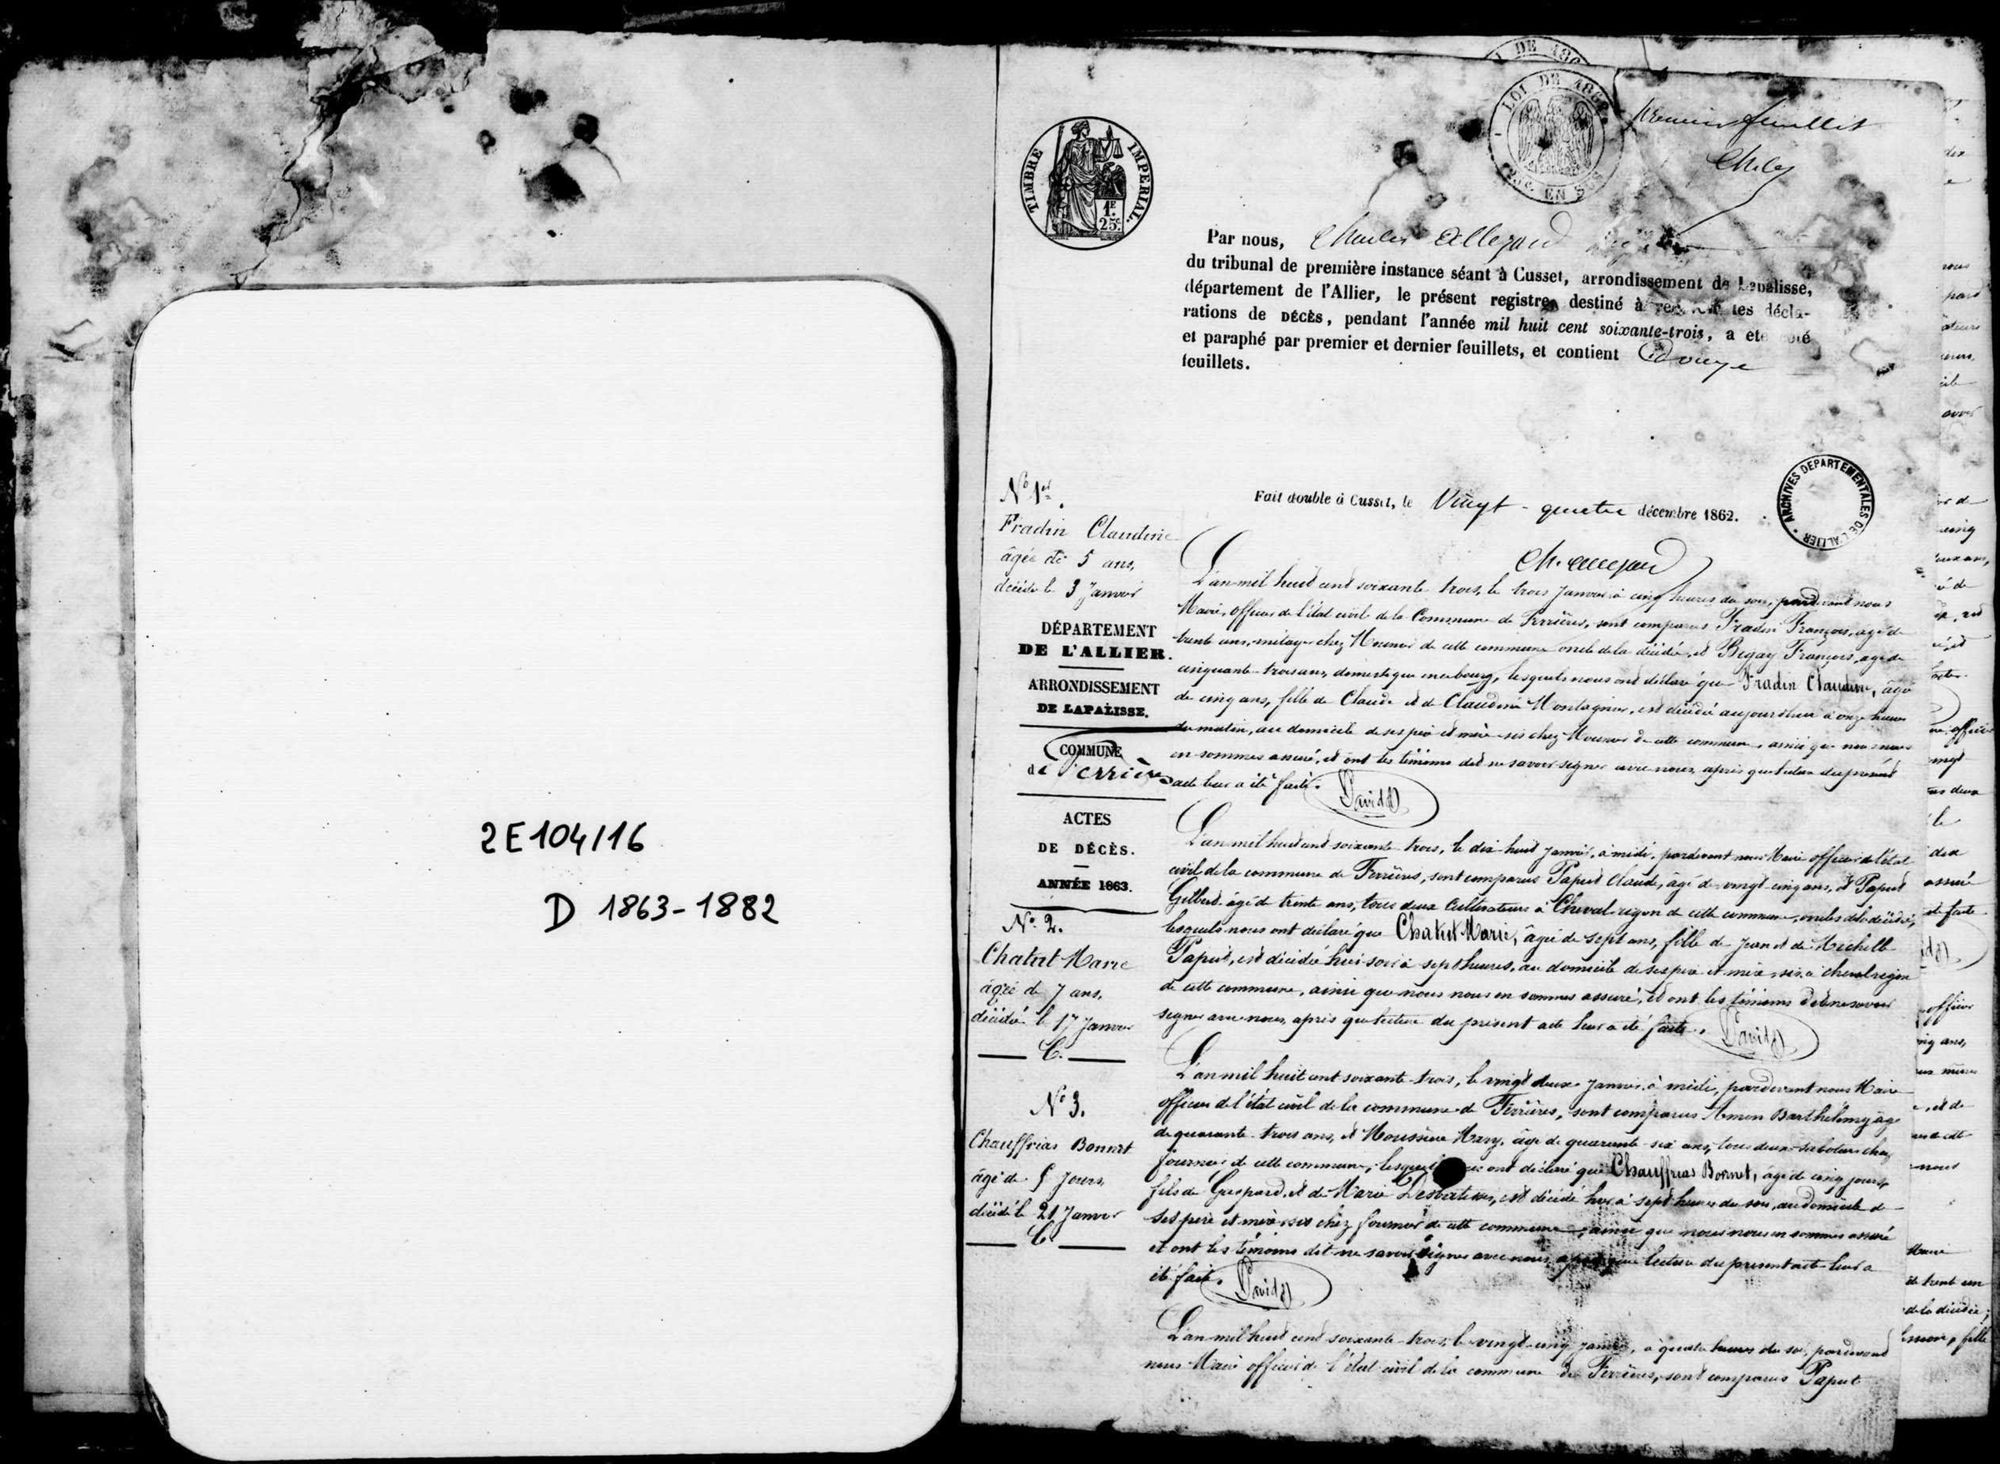 2E104/16
D 1863-1882
TIMBRE IMPERIAL
1F 25c
LOI DE 186
EN S
Premier feuillet
Par nous, Charles Allezard
du tribunal de première instance séant à Cusset, arrondissement de Lapalisse,
département de l'Allier, le présent registre, destiné à les décla-
rations de DÉCÈS, pendant l'année mil huit cent soixante-trois, a été coté
et paraphé par premier et dernier feuillets, et contient Douze
feuillets.
ARCHIVES DEPARTEMENTALES DE L'ALLIER
Fait double à Cusset, le Vingt-quatre décembre 1862.
Ch. Allezard
N° 1er
Fradin Claudine
âgée de 5 ans,
décédée le 3 Janvier
DÉPARTEMENT
DE L'ALLIER.
ARRONDISSEMENT
DE LAPALISSE.
COMMUNE
de Ferrières
ACTES
DE DÉCÈS.
ANNÉE 1863.
L'an mil huit cent soixante trois, le trois Janvier à cinq heures du soir, pardevant nous
Maire, officier de l'état civil de la Commune de Ferrières, sont comparus Fradin François, âgé de
trente ans, métayer chez Mounier de cette commune oncle de la décédée, et Bigay François, âgé de
cinquante-trois ans, domestique au bourg, lesquels nous ont déclaré que Fradin Claudine, âgée
de cinq ans, fille de Claude et de Claudine Montagnier, est décédée aujourd'hui à onze heures
du matin, au domicile de ses père et mère sis chez Mounier de cette commune, ainsi que nous nous
en sommes assuré, et ont les témoins dit ne savoir signer avec nous, après que lecture du présent
acte leur a été faite. David
N° 2.
Chatut Marie
âgée de 7 ans,
décédée le 17 Janvier
C.
L'an mil huit cent soixante trois, le dix-huit Janvier, à midi, pardevant nous Maire officier de l'état
civil de la commune de Ferrières, sont comparus Paput Claude, âgé de vingt-cinq ans, et Paput
Gilbert âgé de trente ans, tous deux Cultivateurs à Chevalrigon de cette commune, oncles de la décédée,
lesquels nous ont déclaré que Chatut Marie, âgée de sept ans, fille de Jean et de Michelle
Paput, est décédée hier soir à sept heures, au domicile de ses père et mère sis à Chevalrigon
de cette commune, ainsi que nous nous en sommes assuré, et ont les témoins dit ne savoir
signer avec nous, après que lecture du présent acte leur a été faite. David
N° 3.
Chauffrias Bonnet
âgé de 5 Jours,
décédé le 21 Janvier
C.
L'an mil huit cent soixante-trois, le vingt deux Janvier, à midi, pardevant nous Maire
officier de l'état civil de la commune de Ferrières, sont comparus Barthélemy âgé
de quarante-trois ans, et Moussière Mary, âgé de quarante-six ans, tous deux sabotiers chez
fournier de cette commune, lesquels nous ont déclaré que Chauffrias Bonnet, âgé de cinq jours,
fils de Gaspard, et de Marie, est décédé hier à sept heures du soir, au domicile de
ses père et mère sis chez fournier de cette commune, ainsi que nous nous en sommes assuré
et ont les témoins dit ne savoir signer avec nous, après que lecture du présent acte leur a
été faite. David
L'an mil huit cent soixante-trois, le vingt-cinq Janvier, à quatre heures du soir, pardevant
nous Maire officier de l'état civil de la commune de Ferrières, sont comparus Paput